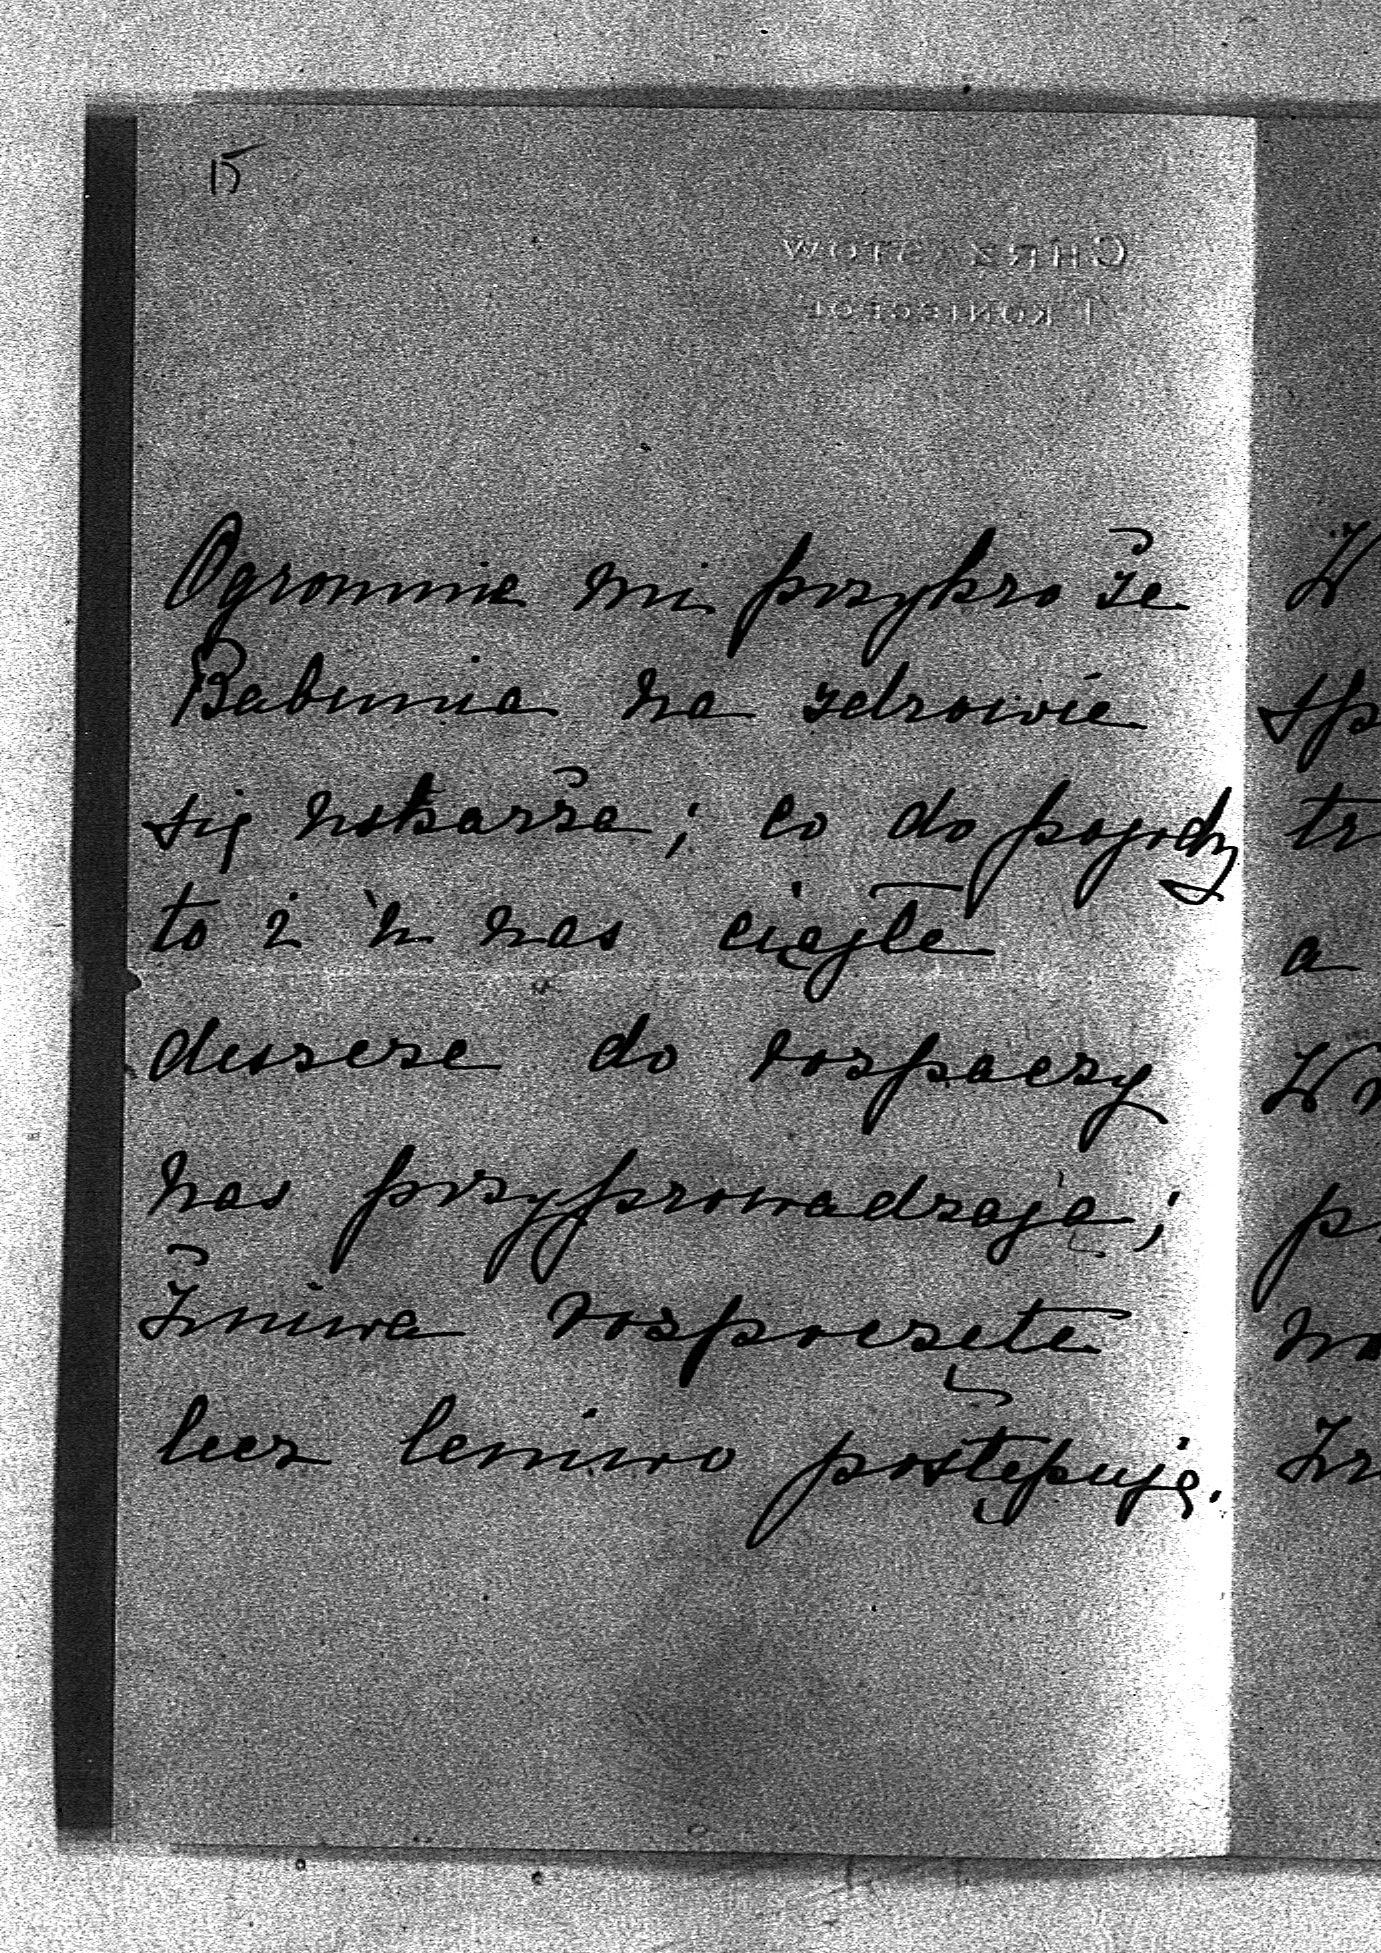 15
CHRZĄSTÓW
P. KONIECPOL
Ogromnie mi przykro że
Babunia na zdrowie
się uskarża; co do pogody
to i u nas ciągle
deszcze do rozpaczy
nas przyprowadzają;
Żniwa rozpoczęte
lecz leniwo postępują.